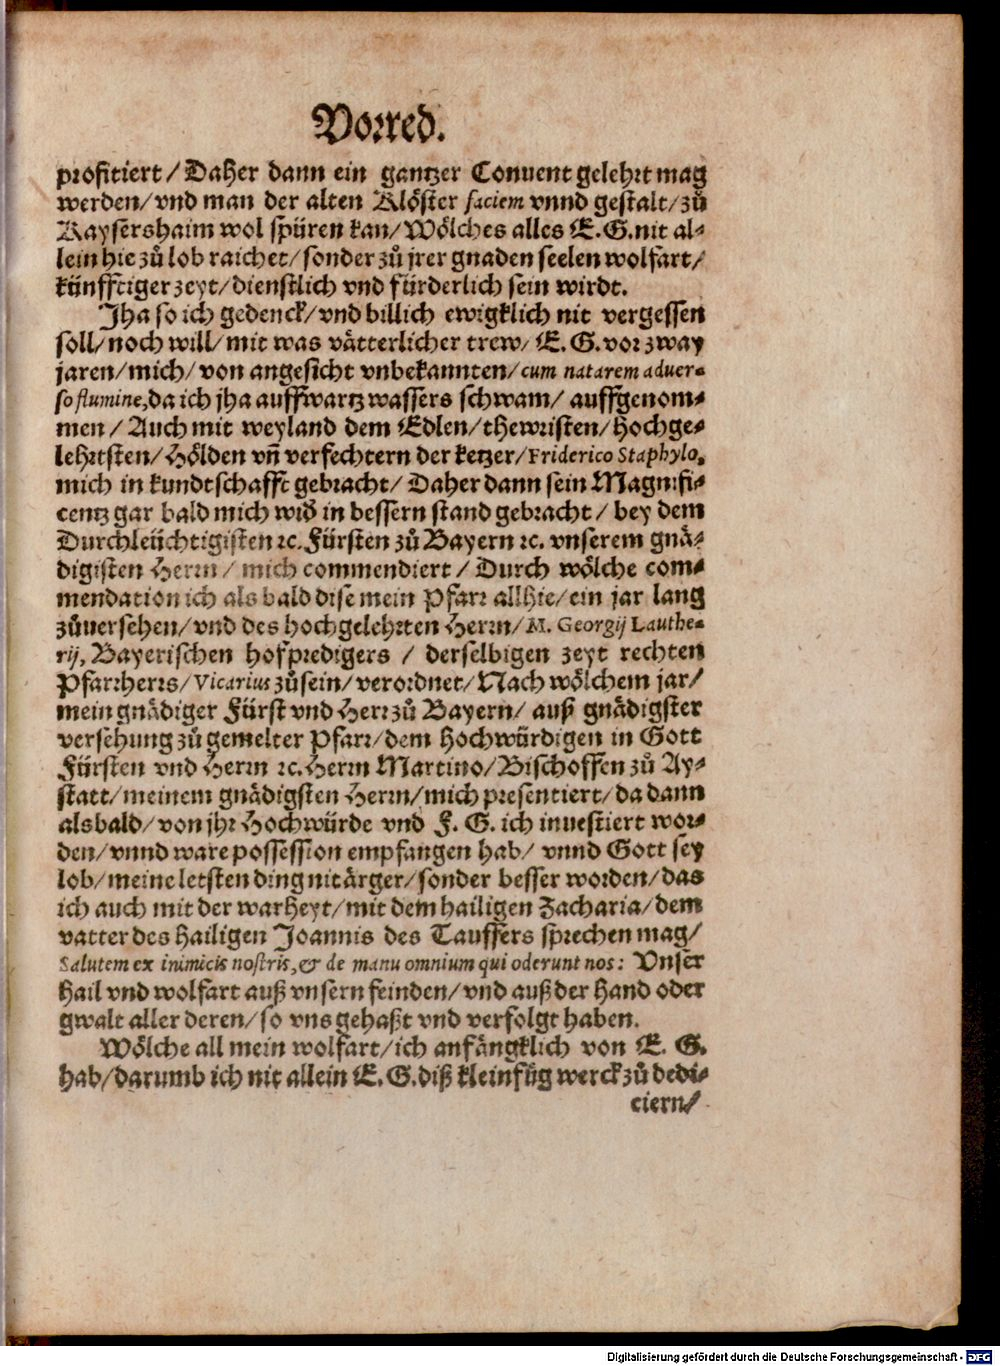 Vorred.
profitiert/ Daher dann ein gantzer Conuent gelehrt mag
werden/ vnd man der alten Klöster faciem vnnd gestalt/ zů
Kaysershaim wol spüren kan/ Wölches alles E. G. nit al-
lein hie zů lob raichet/ sonder zů jrer gnaden seelen wolfart/
künfftiger zeyt/ dienstlich vnd fürderlich sein wirdt.
Jha so ich gedenck/ vnd billich ewigklich nit vergessen
soll/ noch will/ mit was vätterlicher trew/ E. G. vor zway
jaren/ mich/ von angesicht vnbekannten/ cum natarem aduer-
so flumine, da ich jha auffwartz wassers schwam/ auffgenom-
men/ Auch mit weyland dem Edlen/ thewristen/ hochge-
lehrtsten/ Hölden vñ verfechtern der ketzer/ Friderico Staphylo,
mich in kundtschafft gebracht/ Daher dann sein Magnifi-
centz gar bald mich wid̕ in bessern stand gebracht/ bey dem
Durchleüchtigisten ꝛc. Fürsten zů Bayern ꝛc. vnserem gnä-
digisten Herrn/ mich commendiert/ Durch wölche com-
mendation ich als bald dise mein Pfarr allhie/ ein jar lang
zůuersehen/ vnd des hochgelehrten Herrn/ M. Georgij Lauthe-
rij, Bayerischen hofpredigers/ derselbigen zeyt rechten
Pfarrherrs/ Vicarius zů sein/ verordnet/ Nach wölchem jar/
mein gnädiger Fürst vnd Herr zů Bayern/ auß gnädigster
versehung zů gemelter Pfarr/ dem hochwürdigen in Gott
Fürsten vnd Herrn ꝛc. Herrn Martino/ Bischoffen zů Ay-
statt/ meinem gnädigsten Herrn/ mich presentiert/ da dann
alsbald/ von jhr Hochwürde vnd F. G. ich inuestiert wor-
den/ vnnd ware possession empfangen hab/ vnnd Gott sey
lob/ meine letsten ding nit ärger/ sonder besser worden/ das
ich auch mit der warheyt/ mit dem hailigen Zacharia/ dem
vatter des hailigen Joannis des Tauffers sprechen mag/
Salutem ex inimicis nostris, & de manu omnium qui oderunt nos: Vnser
hail vnd wolfart auß vnsern feinden/ vnd auß der hand oder
gwalt aller deren/ so vns gehaßt vnd verfolgt haben.
Wölche all mein wolfart/ ich anfängklich von E. G.
hab/ darumb ich nit allein E. G. diß kleinfüg werck zů dedi-
ciern/
Digitalisierung gefördert durch die Deutsche Forschungsgemeinschaft - DFG